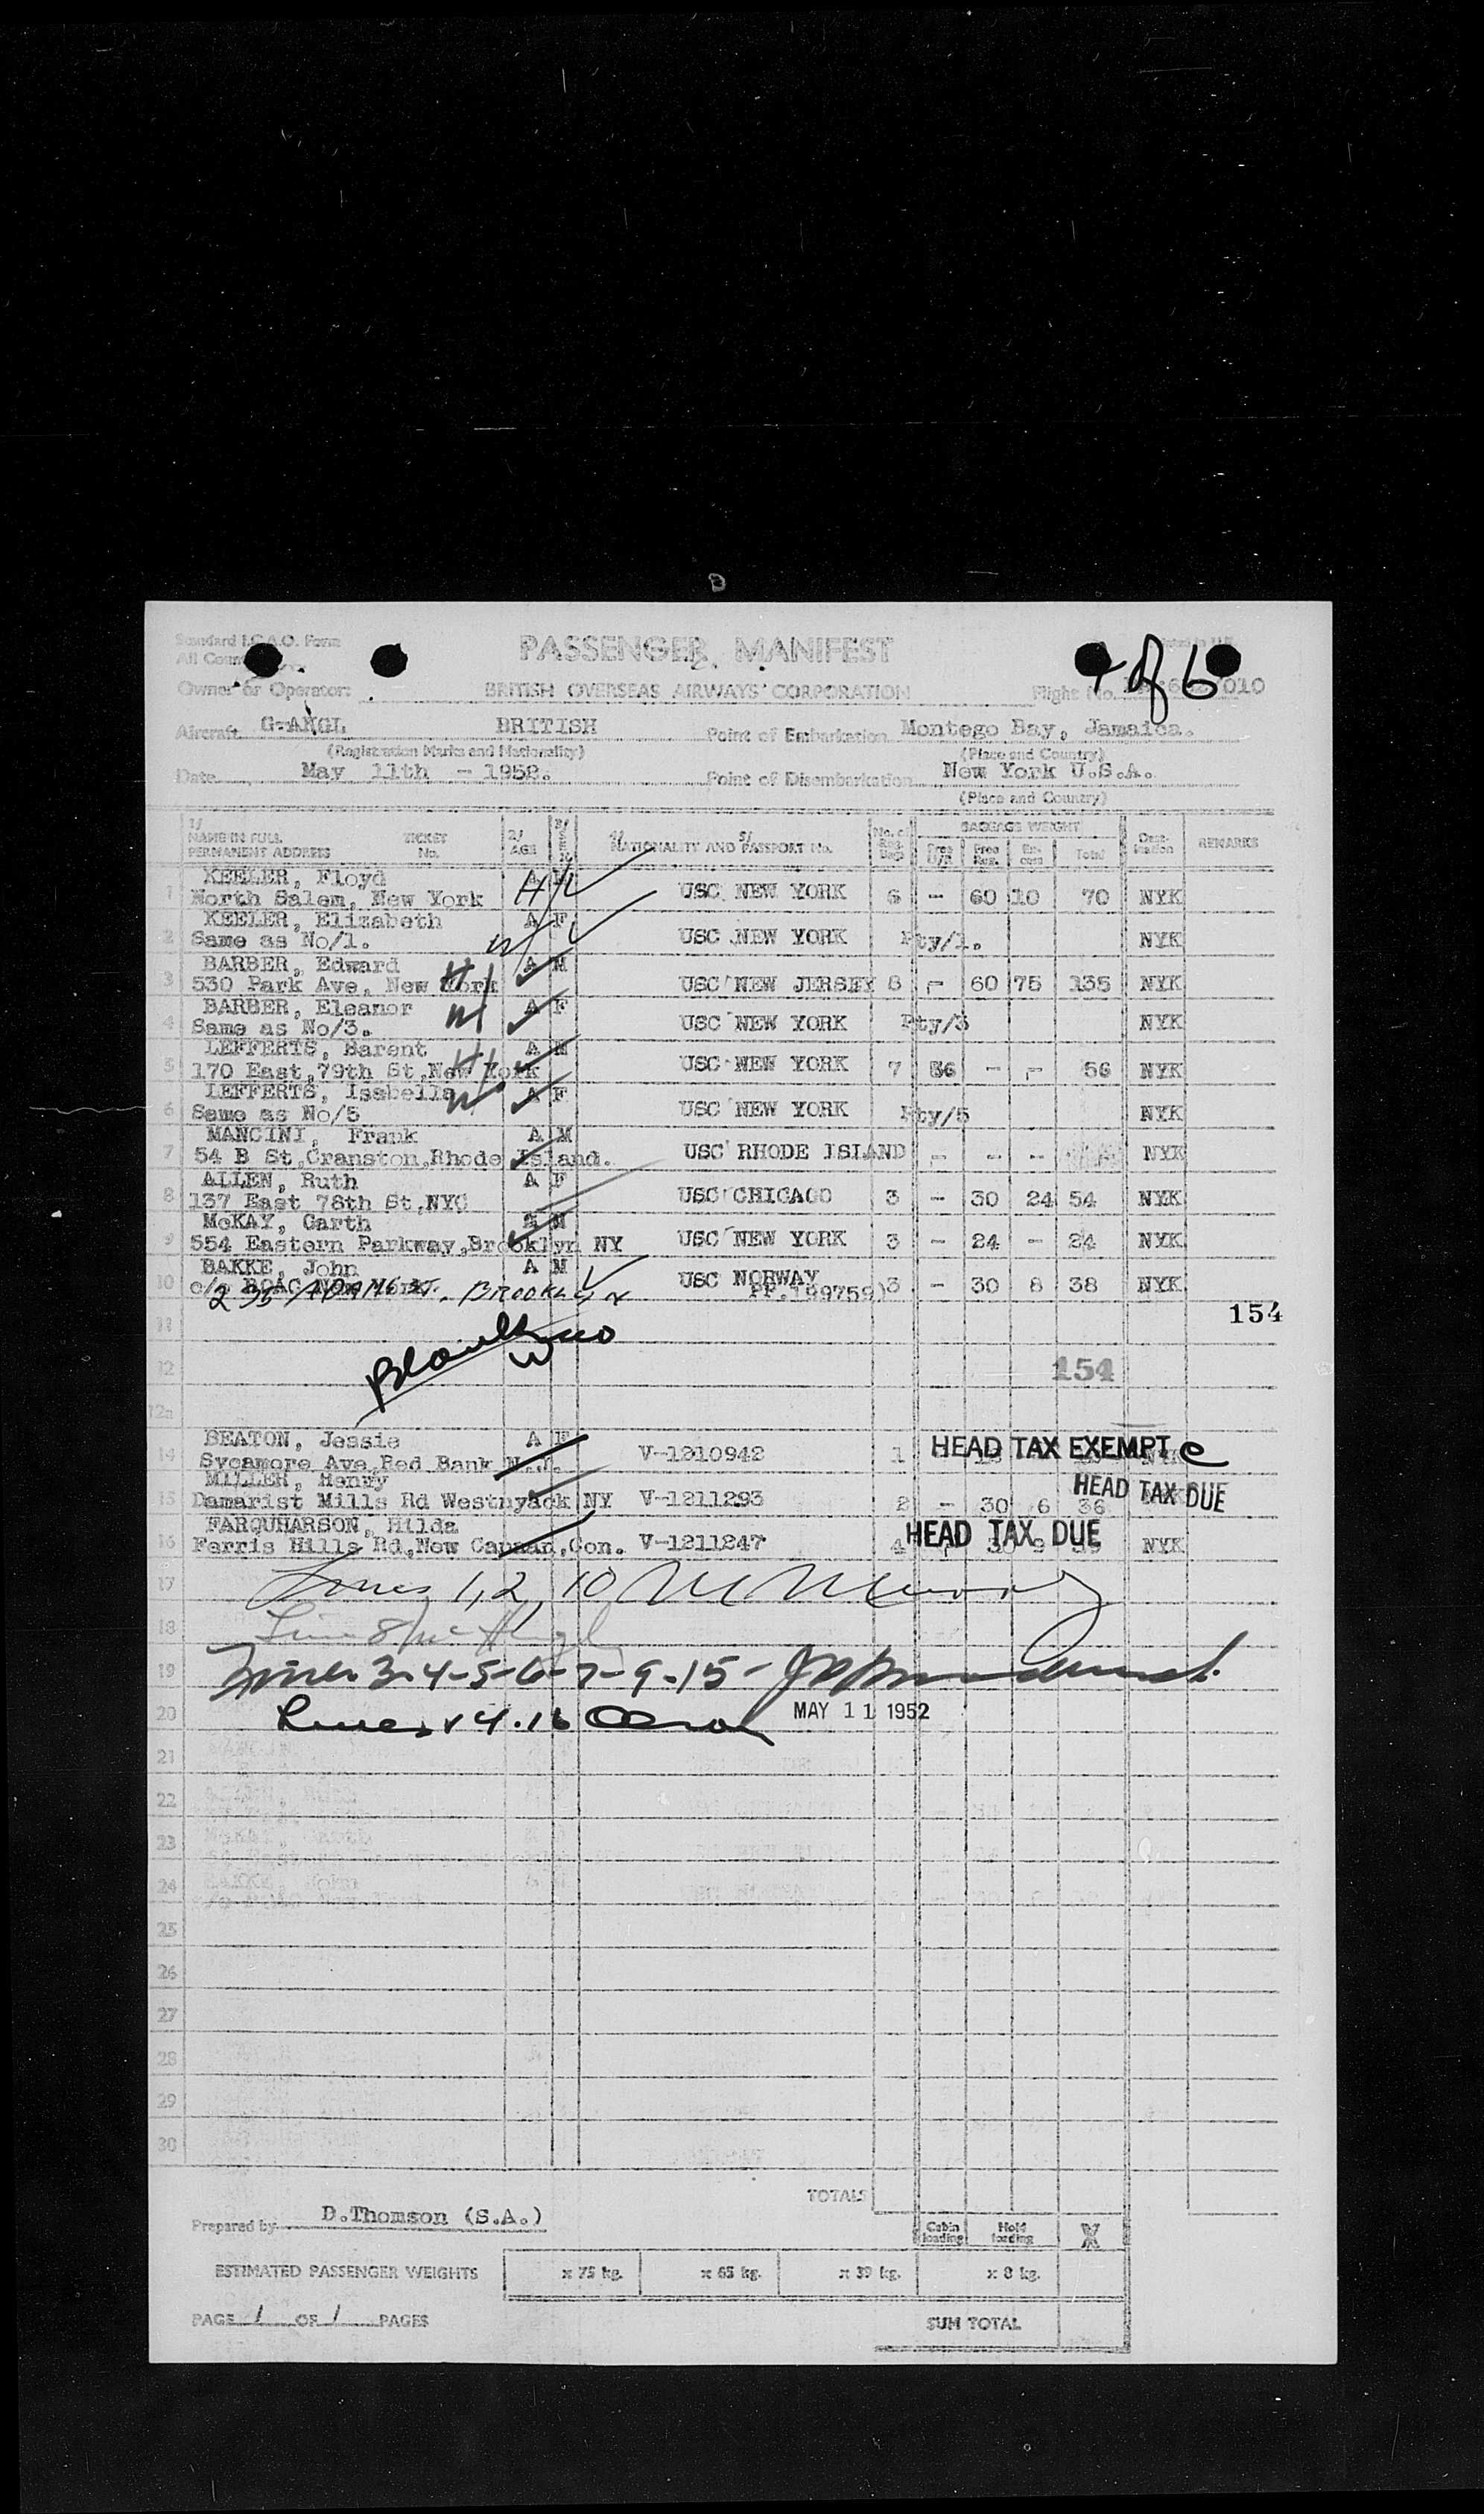 Standard I.C.A.O. Form
PASSENGER MANIFEST
of 6
All
Owner or Operator: BRITISH OVERSEAS AIRWAYS CORPORATION Flight No. 010
Aircraft G-ANGL BRITISH Point of Embarkation Montego Bay, Jamaica.
(Registration Marks and Nationality) (Place and Country)
Date May 11th - 1952. Point of Disembarkation New York U.S.A.
(Place and Country)
1/ NAME IN FULL TICKET 2/ AGE 3/ SEX 4/ 5/ NATIONALITY AND PASSPORT No. No. of Reg. Bags BAGGAGE WEIGHT Destination REMARKS
PERMANENT ADDRESS No. Free Free Reg. Excess Total
KEELER, Floyd A M
1 North Salem, New York USC NEW YORK 6 - 60 10 70 NYK
KEELER, Elizabeth A F
2 Same as No/1. USC NEW YORK Pty/1. NYK
BARBER, Edward A M
3 530 Park Ave, New York USC NEW JERSEY 8 - 60 75 135 NYK
BARBER, Eleanor A F
4 Same as No/3. USC NEW YORK Pty/3 NYK
LEFFERTS, Barent A M
5 170 East,79th St,New York USC NEW YORK 7 56 - - 56 NYK
LEFFERTS, Isabella A F
6 Same as No/5 USC NEW YORK Pty/5 NYK
MANCINI, Frank A M
7 54 B St,Cranston,Rhode Island. USC RHODE ISLAND - - - NYK
ALLEN, Ruth A F
8 137 East 78th St,NYC USC CHICAGO 3 - 30 24 54 NYK
McKAY, Garth M
9 554 Eastern Parkway,Brooklyn NY USC NEW YORK 3 - 24 - 24 NYK
BAKKE, John A M
10 c/o BOAC USC NORWAY 3 - 30 8 38 NYK
ADAMS ST. BROOKLYN PP.199759)
11 154
12 154
12a
BEATON, Jessie A F
14 Sycamore Ave,Red Bank N.J. V-1210942 1 HEAD TAX EXEMPT e
MILLER, Henry
15 Damarist Mills Rd Westnyack NY V-1211293 2 - 30 6 36 HEAD TAX DUE
FARQUHARSON, Hilda
16 Ferris Hills Rd,New Canaan,Con. V-1211247 4 HEAD TAX DUE NYK
17 Lines 1, 2, 10
18 Line 8
19 Lines 3-4-5-6-7-9-15-
20 Lines 14.16 Olson MAY 11 1952
21
22
23
24
25
26
27
28
29
30
TOTALS
Prepared by D.Thomson (S.A.) Cabin loading Hold loading X
ESTIMATED PASSENGER WEIGHTS x 75 kg. x 65 kg. x 39 kg. x 8 kg.
PAGE 1 OF 1 PAGES SUM TOTAL